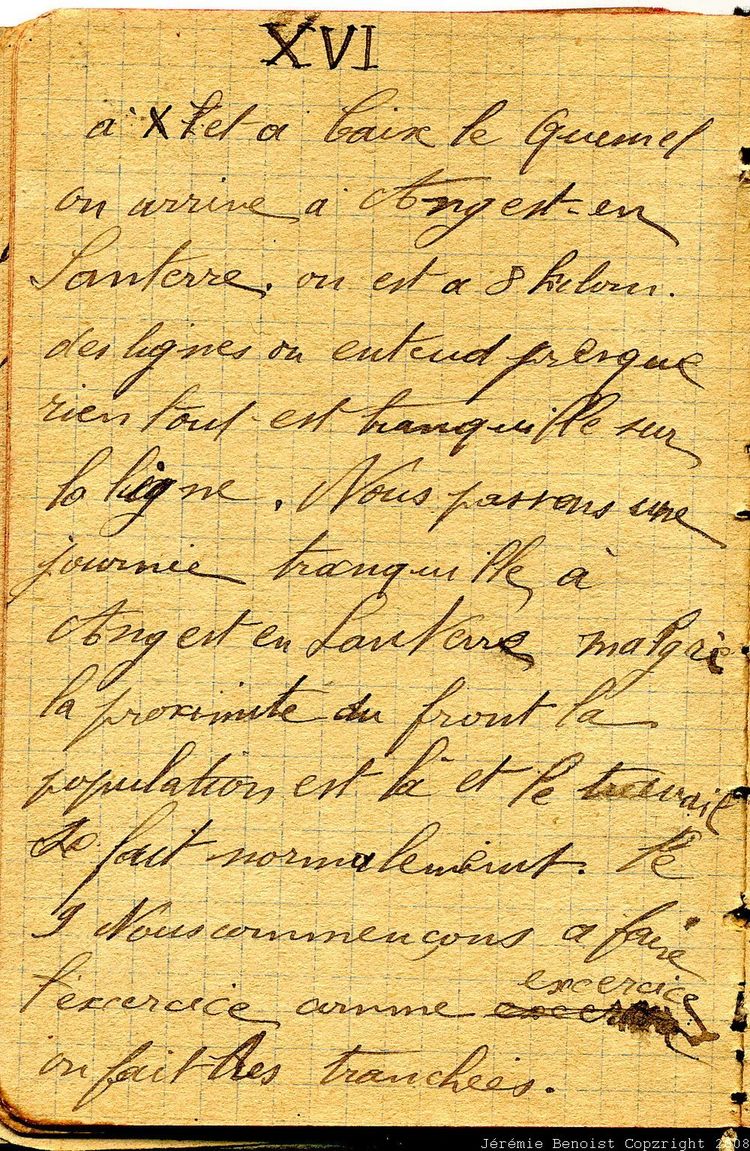 XVI
à X et a Caix le Quesnel
on arrive a Angest-en
Santerre. on est a 8 kilom.
des lignes on entend presque
rien tout est tranquille sur
la ligne. Nous passons une
journée tranquille à
Angest en Santerre malgré
la proximité du front la
population est là et le travail
se fait normalement. le
9 Nous commençons a faire
l'excercice comme excercice
on fait des tranchées.
Jérémie Benoist Copzright 2008